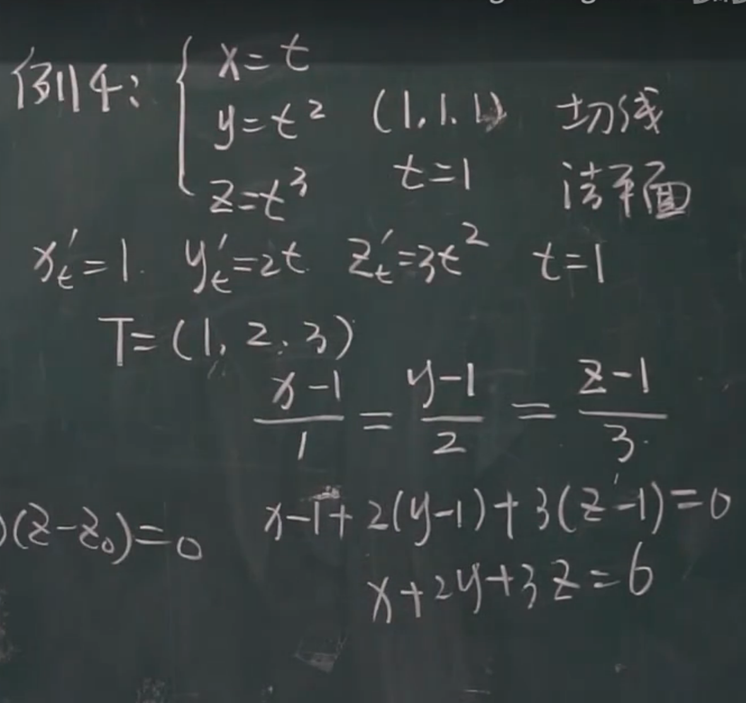 例4:
x=t
y=t² (1,1,1) 切线
z=t³ t=1 法平面
x't=1. y't=2t z't=3t² t=1
T=(1,2,3)
(x-1)/1 = (y-1)/2 = (z-1)/3
)(z-z₀)=0 x-1+2(y-1)+3(z-1)=0
x+2y+3z=6